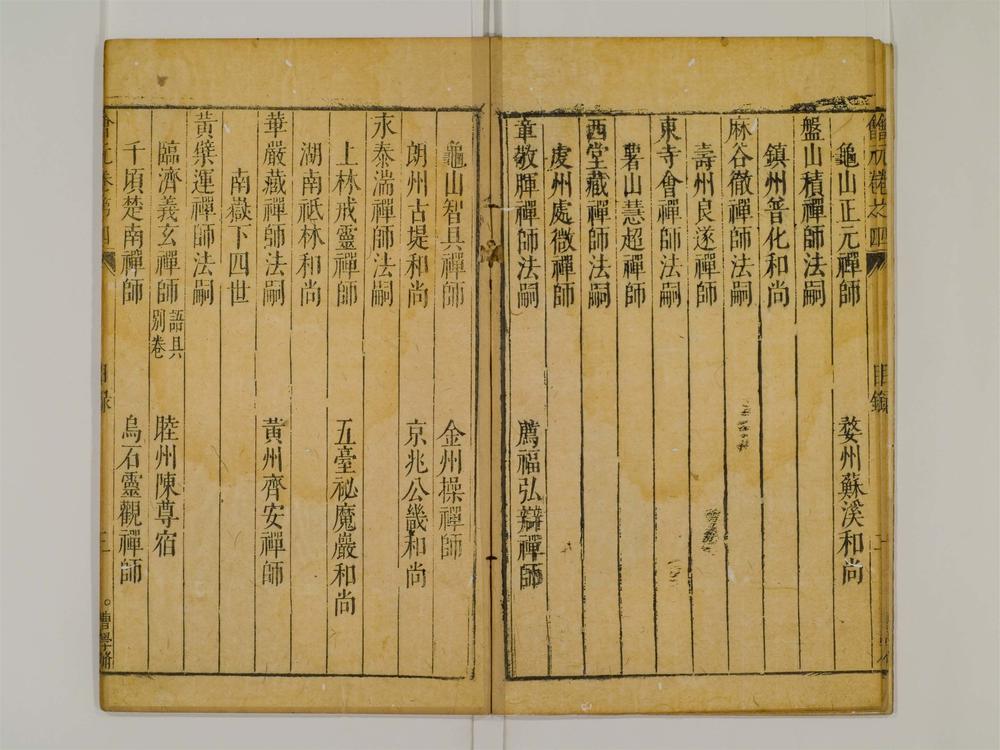 會元卷之四 目錄
龜山正元禪師 婺州蘇溪和尚
盤山積禪師法嗣
鎮州普化和尚
麻谷徹禪師法嗣
壽州良遂禪師
東寺會禪師法嗣
薯山慧超禪師
西堂藏禪師法嗣
虔州處微禪師
章敬暉禪師法嗣 薦福弘辯禪師
龜山智具禪師 金州操禪師
朗州古堤和尚 京兆公畿和尚
永泰湍禪師法嗣
上林戒靈禪師 五臺祕魔巖和尚
湖南祇林和尚
華嚴藏禪師法嗣 黃州齊安禪師
南嶽下四世
黃檗運禪師法嗣
臨濟義玄禪師 語具別卷 睦州陳尊宿
千頃楚南禪師 烏石靈觀禪師
會元卷第四 目錄